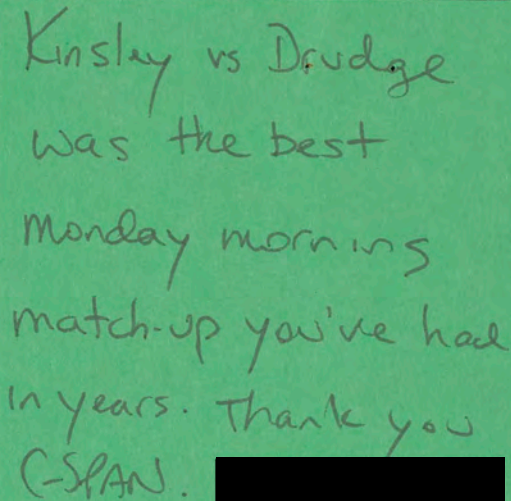 Kinsley vs Drudge
was the best
Monday morning
match-up you've had
in years. Thank you
C-SPAN.